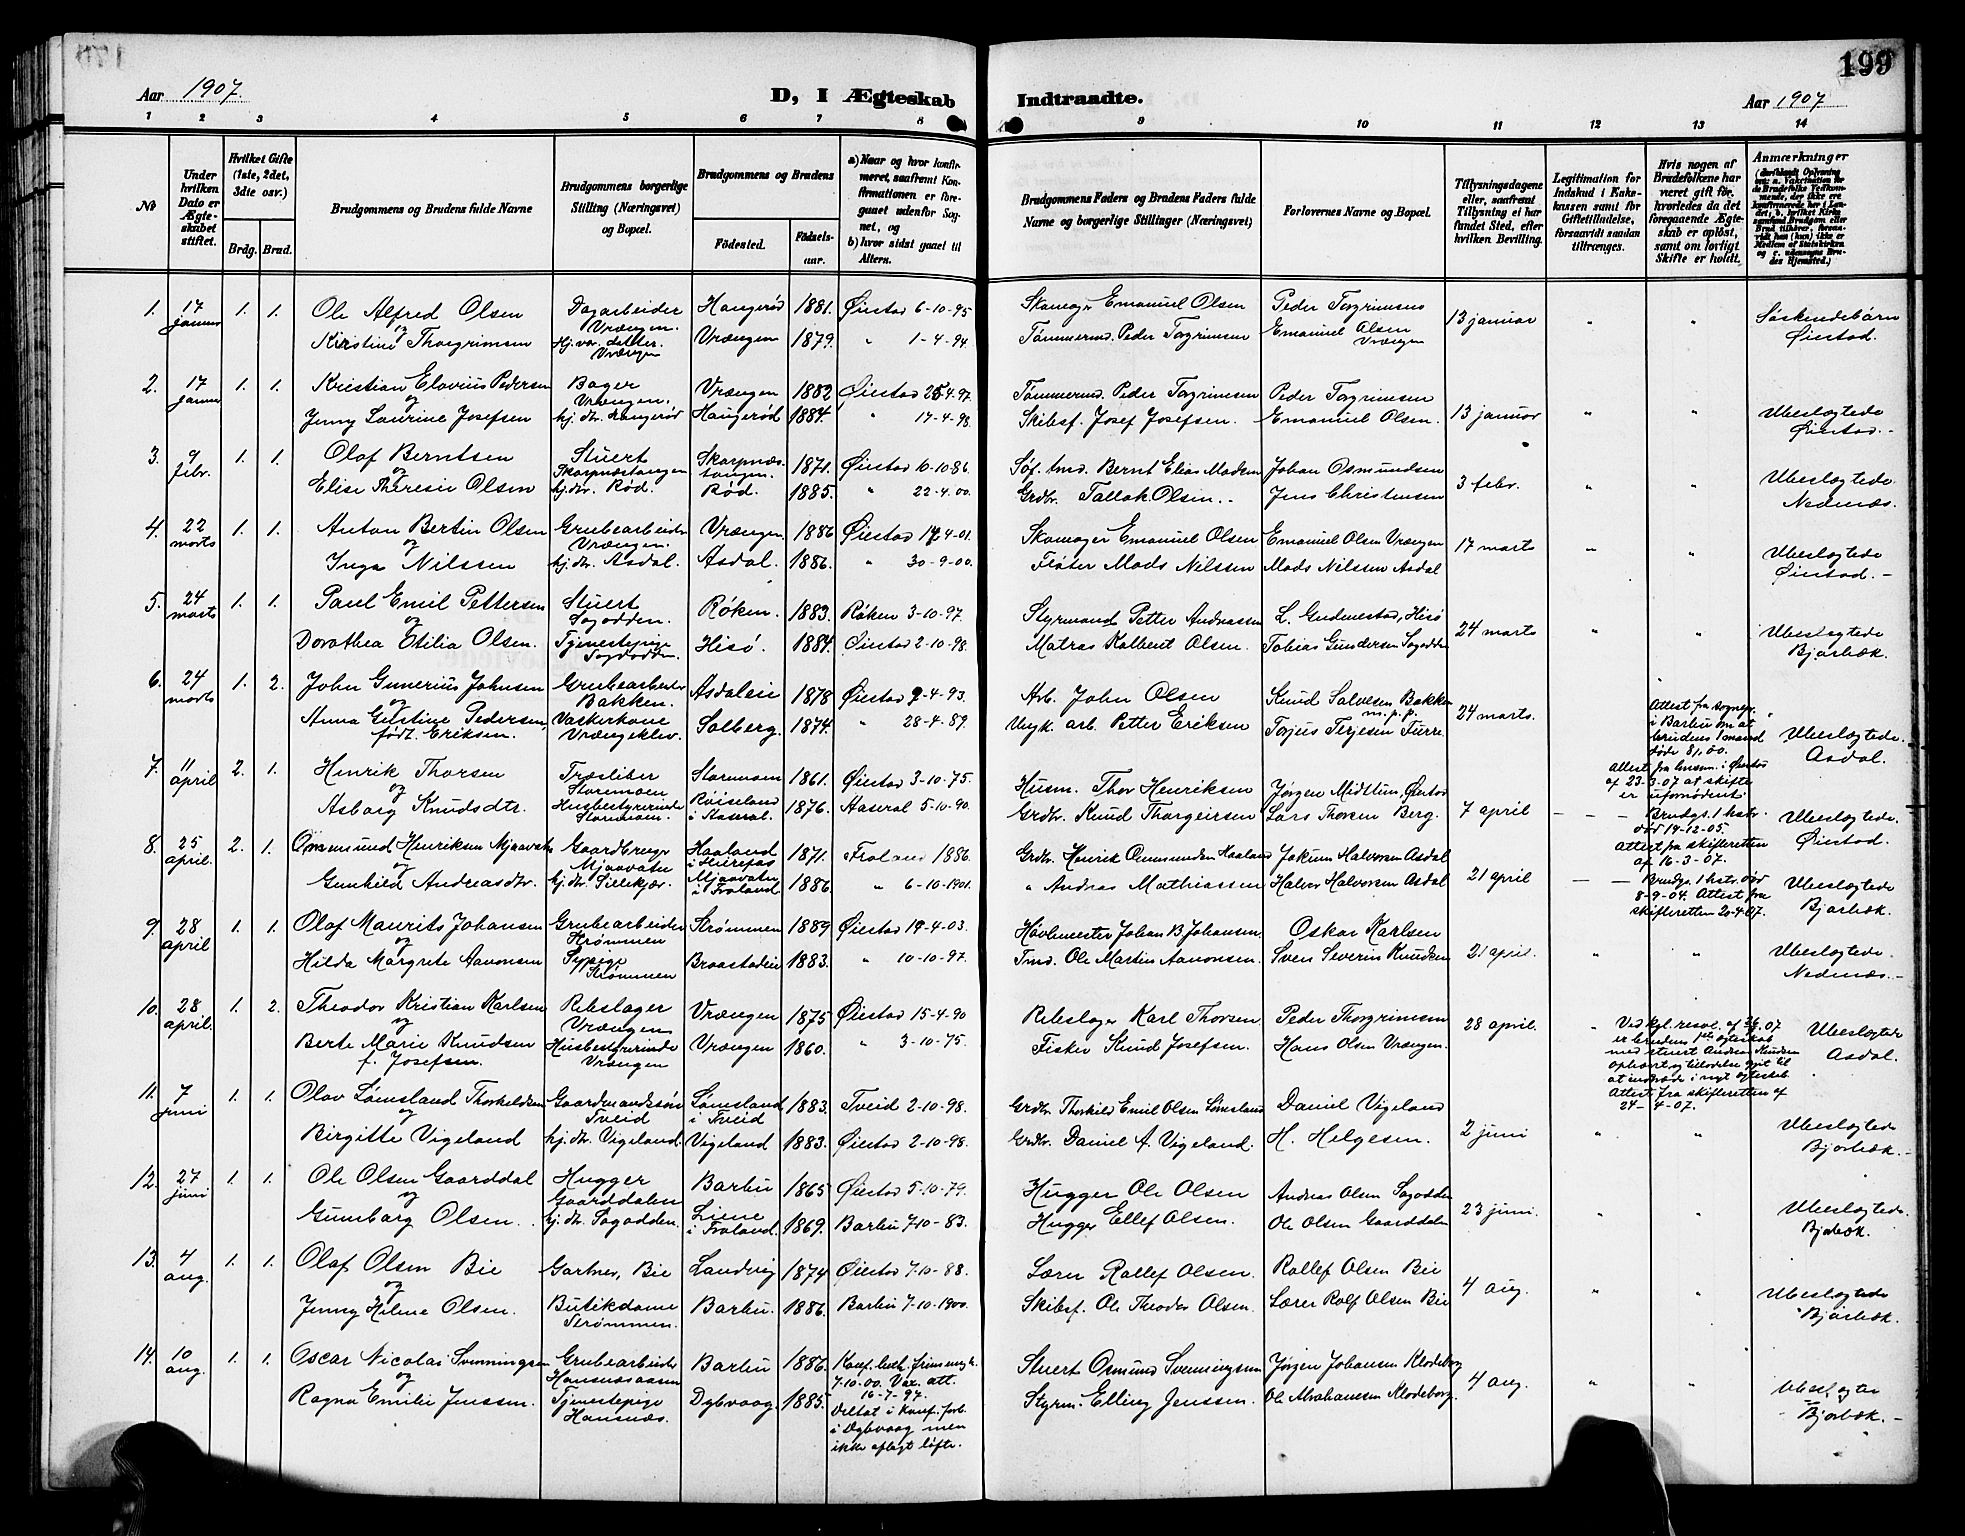 199
Aar 1907.
D, I Ægteskab Indtraadte.
Aar 1907
1 2 3 4 5 6 7 8 9 10 11 12 13 14
No
Under hvilken Dato er Ægteskabet stiftet.
Hvilket Gifte (1ste, 2det, 3dte osv.)
Brdg. Brud.
Brudgommens og Brudens fulde Navne
Brudgommens borgerlige Stilling (Næringsvei) og Bopæl.
Brudgommens og Brudens
Fødested. Fødsels-aar.
a) Naar og hvor konfirmeret, saafremt Konfirmationen er foregaaet udenfor Sognet, og
b) hvor sidst gaaet til Alters.
Brudgommens Faders og Brudens Faders fulde Navne og borgerlige Stillinger (Næringsvei)
Forlovernes Navne og Bopæl.
Tillysningsdagene eller, saafremt Tillysning ei har fundet Sted, efter hvilken Bevilling.
Legitimation for Indskud i Enkekassen samt for Giftetilladelse, forsaavidt saadan tiltrænges.
Hvis nogen af Brudefolkene har været gift før, hvorledes da det foregaaende Ægteskab er opløst, samt om lovligt Skifte er holdt.
Anmærkninger
1. 17 januar 1. 1. Ole Alfred Olsen Dagarbeider Vrængen. Haugerød 1881. Øiestad 6-10-95 Skomager Emanuel Olsen Peder Torgrimsen 13 januar " " Søskendebørn
og Kirstine Thorgrimsen Hj.vær. datter. Vrængen Vrængen 1879. " 1-4-94. Tømmermd. Peder Torgrimsen Emanuel Olsen Vrængen Øiestad.
2. 17 januar 1. 1. Kristian Elovius Pedersen Bager Vrængen. Vrængen 1882 Øiestad 25-4-97. Tømmermd. Peder Torgrimsen Peder Torgrimsen 13 januar " " Ubeslægtede
og Jenny Laurine Josefsen hj. dtr. Haugerød Haugerød 1884. " 17-4-98. Skibsf. Josef Josefsen. Emanuel Olsen. Øiestad.-
3. 9 febr. 1. 1. Olaf Berntsen Stuert Skarpnæstangen Skarpnæstangen. 1871. Øiestad 10-10-86. Søf. tmd. Bernt Elias Madsen Johan Osmundsen 3 febr. " " Ubeslægtede
og Elise Theresie Olsen hj.dtr. Rød. Rød. 1885. " 22-4-00. Grdbr. Tallak Olsen.- Jens Christensen Nednæs.
4. 22 marts 1. 1. Anton Bertin Olsen Grubearbeider Vrængen. Vrængen 1886 Øiestad 14-4-01. Skomager Emanuel Olsen Emanuel Olsen Vrængen 17 marts " " Ubeslægtede
og Inga Nilssen hj. dtr. Asdal. Asdal. 1886. " 30-9-00. Fløter Mads Nilssen Mads Nilssen Asdal Øiestad.-
5. 24 marts 1. 1. Paul Emil Pettersen Stuert Sagodden. Røken. 1883. Røken 3-10-97. Styrmand Petter Andreassen L. Gudmestad, Hisø 24 marts " " Ubeslægtede
og Dorothea Otilia Olsen. Tjenestepige Sagodden. Hisø. 1884. Øiestad 2-10-98. Matros Kalbent Olsen. Tobias Gundersen Sagodden Bjorbæk.
6. 24 marts 1. 2. John Gunerius Johnsen Grubearbeider Bakken. Asdaleie 1878 Øiestad 9-4-93. Arb. John Olsen Knud Salvesen Bakken m.p.p. 24 marts. Attest fra sognepr. i Barbu om at brudens 1 mand døde 8/1 00. Ubeslægtede.
og Anna Gustine Pedersen, født Eriksen. Vaskerkone Vrængeklev. Solberg. 1874. " 28-4-89. Petter Eriksen Torjus Terjesen Furre. Attest fra lensm. i Øiestad af 23-3-07 at skifte er ufornødent. Asdal.
7. 11 april 2. 1. Henrik Thorsen Træsliber Storemoen Storemoen 1861. Øiestad 3-10-75 Husm. Thor Henriksen Jørgen Midttun, Øiestad 7 april - - - Brudgs. 1 hstr. død 14-12-05. Attest fra skifteretten af 16-3-07. Ubeslægtede.
og Asborg Knudsdtr. Husbestyrerinde Storemoen. Røiseland i Aaseral. 1876. Aaseral 5-10-90. Grdbr. Knud Thorgeirsen Lars Thorsen Berg. Øiestad.
8. 25 april. 2. 1. Omsmund Henriksen Mjaavatn Gaardbruger Mjaavatn Haaland i Herefos 1871. Froland 1886. Grdbr. Henrik Omsmundsen Haaland Jokum Halvorsen Asdal 21 april - - Brudgs. 1 hstr. død 8-9-04. Attest fra skifteretten 20-4-07. Ubeslægtede
Gunhild Andreasdtr. hj. dtr. Sillekjær. Mjaavatn i Froland 1886. " 6-10-1901. " Andreas Mathiassen Halvor Halvorsen Asdal Bjorbæk.
9. 28 april 1. 1. Olaf Maurits Johansen Grubearbeider Strømmen Strømmen 1889 Øiestad 19-4-03. Høvlmester Johan B. Johansen. Oskar Karlsen 21 april. " " Ubeslægtede.
og Hilda Margrete Aanonsen Sypige Strømmen Braastadeie 1883. " 10-10-97. Tmd. Ole Martin Aanonsen. Sven Severin Knudsen Nednæs.-
10. 28 april. 1. 2. Theodor Kristian Karlsen Rebslager Vrængen Vrængen 1875 Øiestad 15-4-90 Rebslager Karl Thorsen. Peder Thorgrimsen 28 april. " Ved kgl. resol. af 26/3 07 er brudens 1ste egteskab med stuert Andreas Knudsen ophævet og tilladelse givet til at indtræde i nyt egteskab. Attest fra skifteretten af 24-4-07. Ubeslægtede
og Berte Marie Knudsen f. Josefsen. Husbestyrerinde Vrængen Vrængen 1860. " 3-10-75. Fisker Knud Josefsen. Hans Olsen Vrængen. Asdal.
11. 7 juni 1. 1. Olav Lømsland Thorkildsen Gaardmandssøn Tveid Lømsland i Tveid 1883. Tveid 2-10-98. Grdbr. Thorkild Emil Olsen Lømsland Daniel Vigeland 2 juni " " Ubeslægtede
og Birgitte Vigeland hj. dtr. Vigeland. Vigeland 1883. Øiestad 2-10-98. Grdbr. Daniel A. Vigeland. H. Helgesen. Bjorbæk.-
12. 27 juni 1. 1. Ole Olsen Gaarddal Hugger Gaarddalen Barbu 1865 Øiestad 5-10-79. Hugger Ole Olsen Andreas Olsen Sagodden 23 juni. " " Ubeslægtede.
og Gunborg Olsen. hj. dtr. Sagodden. Liene i Froland. 1869. Barbu 7-10-83. Hugger Ellef Olsen. Ole Olsen Gaarddalen Bjorbæk.
13. 4 aug. 1. 1. Olaf Olsen Bie Gartner, Bie Landvig 1874 Øiestad 7-10-88. Lærer Rollef Olsen. Rollef Olsen Bie 4 aug. " " Ubeslægtede
og Jenny Hilma Olsen. Butikdame Strømmen. Barbu. 1886. Barbu 7-10-1900. Skibsf. Ole Theodor Olsen. Lærer Rolf Olsen Bie Bjorbæk.
14. 10 aug. 1. 1. Oscar Nicolai Svenningsen Grubearbeider Hansnæsaasen Barbu 1886. Konf. luth. frimenigh. 7-10-00. Vax. att. 16-7-97. Stuert Osmund Svenningsen Jørgen Johansen Klodeborg 4 aug. " " Ubeslægtede
og Ragna Emilie Jenssen. Tjenestepige Hansnæs. Dybvaag. 1885. Deltat i konf. forb. i Dybvaag men ikke aflagt løfte. Styrm. Elling Jenssen. Ole Abrahamsen Klodeborg. Bjorbæk.-